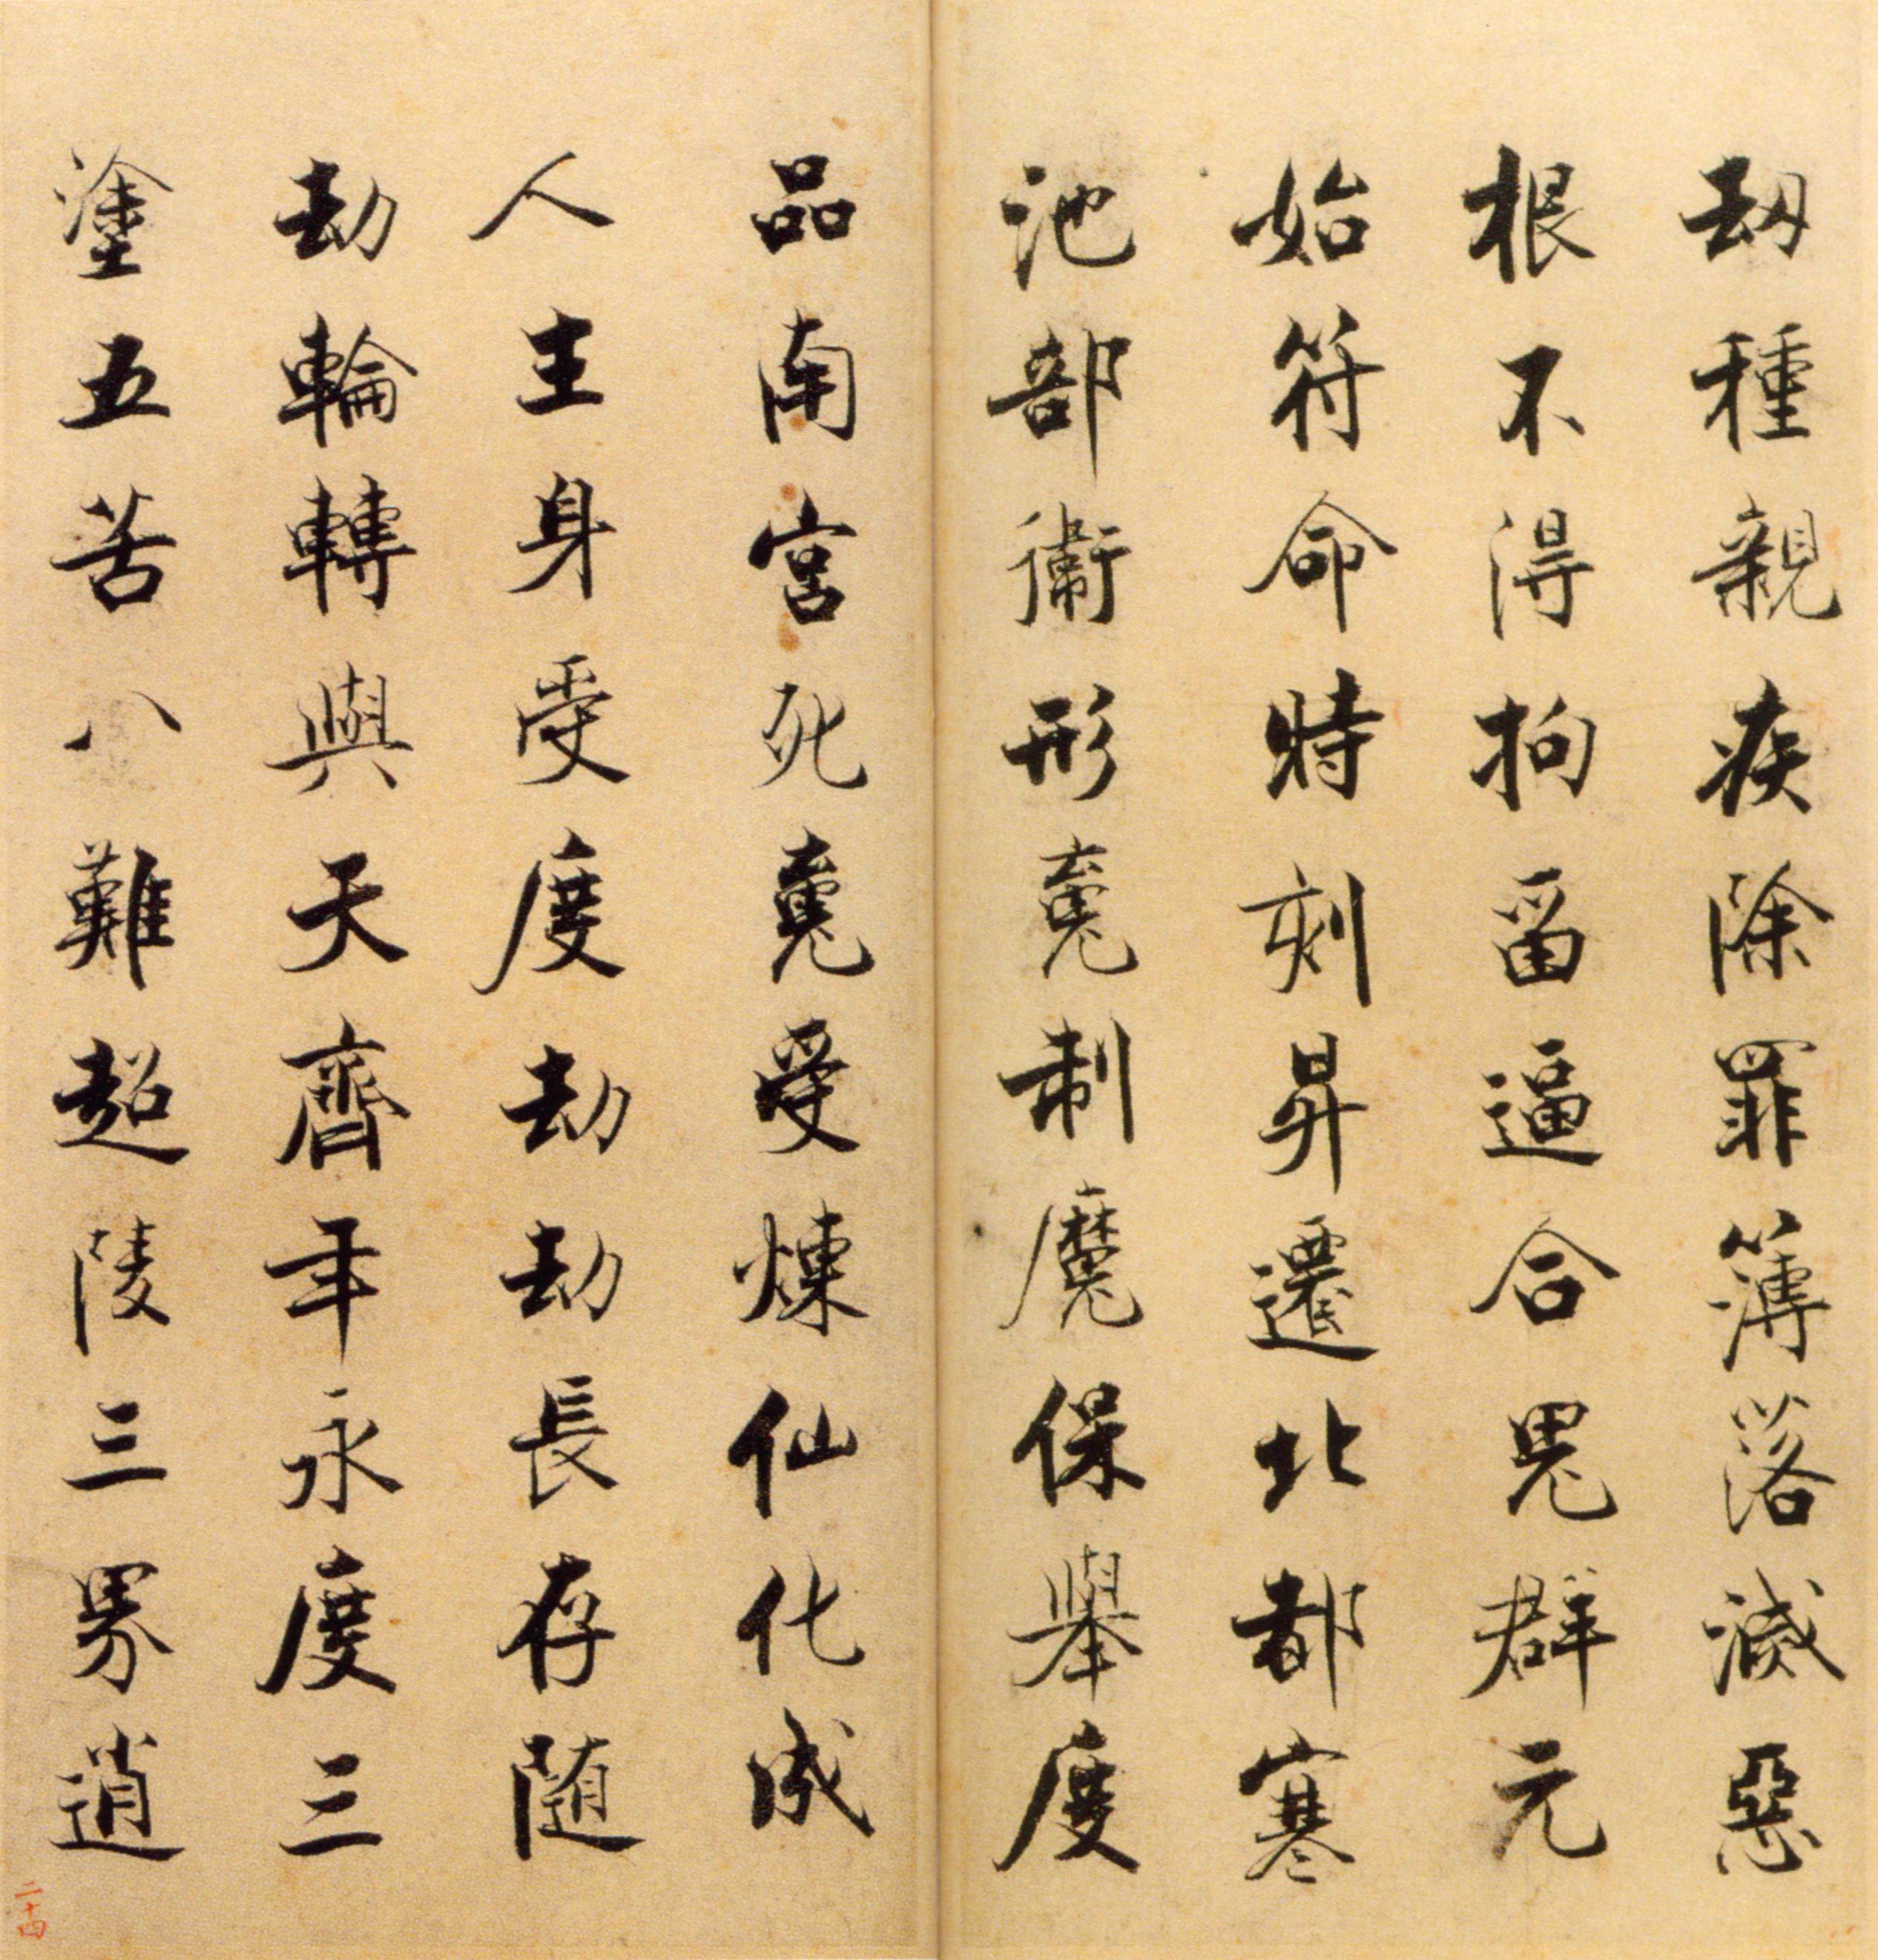 劫種親疾除罪簿落滅惡
根不得拘留逼合鬼群元
始符命時刻昇遷北都寒
池部衛形魂制魔保舉度
品南宮死魂受煉仙化成
人生身受度劫劫長存随
劫輪轉與天齊年永度三
塗五苦八難超陵三界逍
二十四